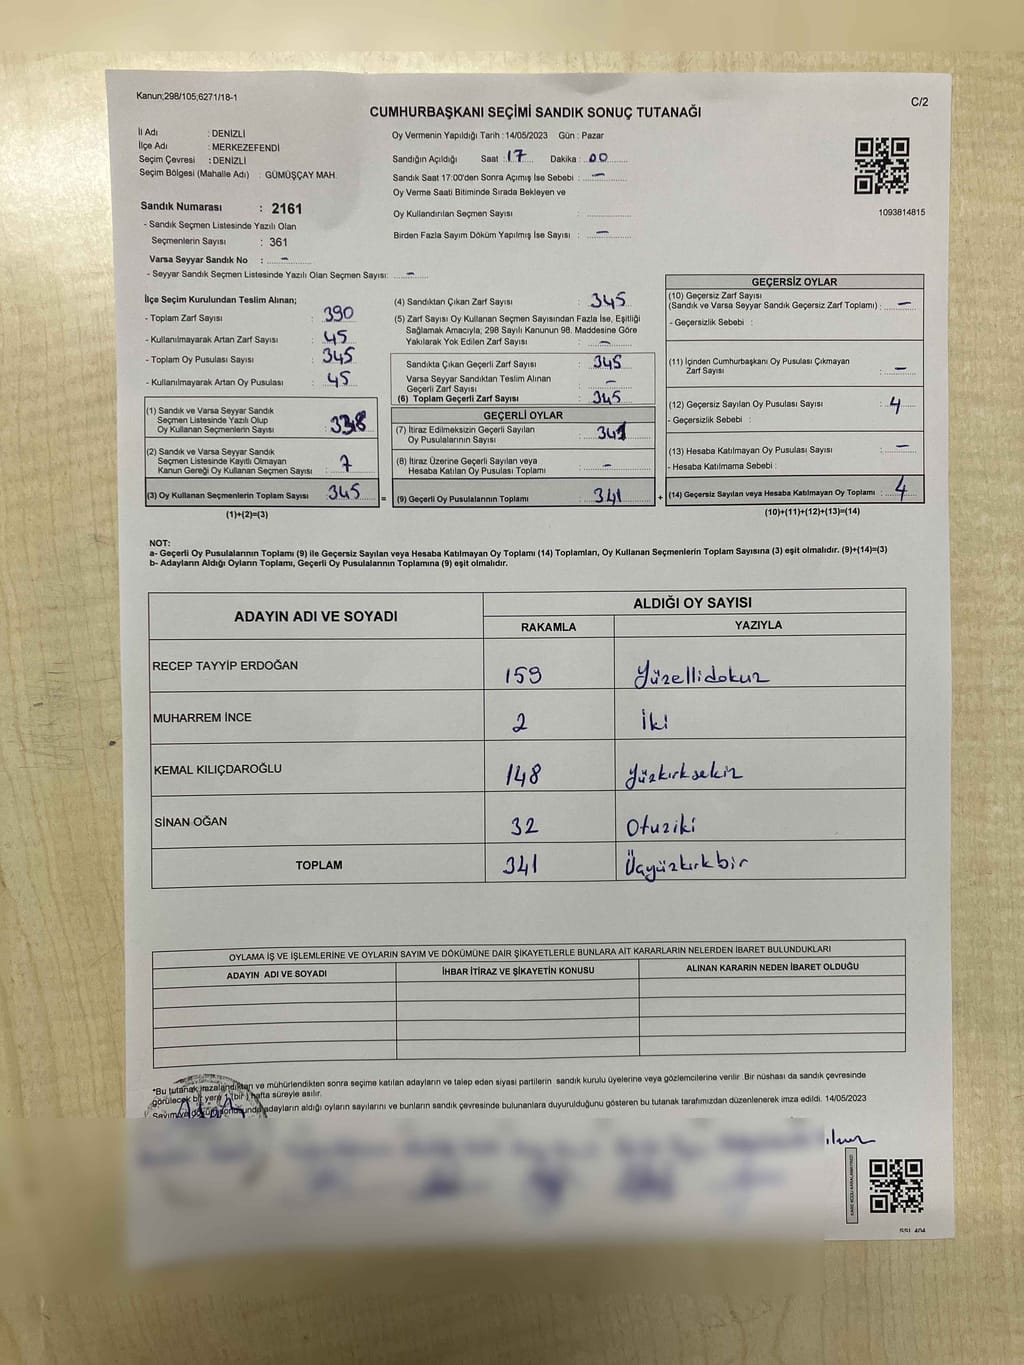 Kanun;298/105;6271/18-1
CUMHURBAŞKANI SEÇİMİ SANDIK SONUÇ TUTANAĞI
C/2
İl Adı : DENİZLİ
İlçe Adı : MERKEZEFENDİ
Seçim Çevresi : DENİZLİ
Seçim Bölgesi (Mahalle Adı) : GÜMÜŞÇAY MAH.
Sandık Numarası : 2161
- Sandık Seçmen Listesinde Yazılı Olan
Seçmenlerin Sayısı : 361
Varsa Seyyar Sandık No : -
- Seyyar Sandık Seçmen Listesinde Yazılı Olan Seçmen Sayısı: -
Oy Vermenin Yapıldığı Tarih : 14/05/2023 Gün : Pazar
Sandığın Açıldığı Saat : 17 Dakika : 00
Sandık Saat 17:00'den Sonra Açımış İse Sebebi : -
Oy Verme Saati Bitiminde Sırada Bekleyen ve
Oy Kullandırılan Seçmen Sayısı :
Birden Fazla Sayım Döküm Yapılmış İse Sayısı : -
1093814815
İlçe Seçim Kurulundan Teslim Alınan;
- Toplam Zarf Sayısı : 390
- Kullanılmayarak Artan Zarf Sayısı : 45
- Toplam Oy Pusulası Sayısı : 345
- Kullanılmayarak Artan Oy Pusulası : 45
(1) Sandık ve Varsa Seyyar Sandık
Seçmen Listesinde Yazılı Olup
Oy Kullanan Seçmenlerin Sayısı : 338
(2) Sandık ve Varsa Seyyar Sandık
Seçmen Listesinde Kayıtlı Olmayan
Kanun Gereği Oy Kullanan Seçmen Sayısı : 7
(3) Oy Kullanan Seçmenlerin Toplam Sayısı : 345
(1)+(2)=(3)
=
(4) Sandıktan Çıkan Zarf Sayısı : 345
(5) Zarf Sayısı Oy Kullanan Seçmen Sayısından Fazla İse, Eşitliği
Sağlamak Amacıyla; 298 Sayılı Kanunun 98. Maddesine Göre
Yakılarak Yok Edilen Zarf Sayısı : -
Sandıkta Çıkan Geçerli Zarf Sayısı : 345
Varsa Seyyar Sandıktan Teslim Alınan
Geçerli Zarf Sayısı : -
(6) Toplam Geçerli Zarf Sayısı : 345
GEÇERLİ OYLAR
(7) İtiraz Edilmeksizin Geçerli Sayılan
Oy Pusulalarının Sayısı : 341
(8) İtiraz Üzerine Geçerli Sayılan veya
Hesaba Katılan Oy Pusulası Toplamı : -
(9) Geçerli Oy Pusulalarının Toplamı : 341
+
GEÇERSİZ OYLAR
(10) Geçersiz Zarf Sayısı
(Sandık ve Varsa Seyyar Sandık Geçersiz Zarf Toplamı) : -
- Geçersizlik Sebebi :
(11) İçinden Cumhurbaşkanı Oy Pusulası Çıkmayan
Zarf Sayısı : -
(12) Geçersiz Sayılan Oy Pusulası Sayısı : 4
- Geçersizlik Sebebi :
(13) Hesaba Katılmayan Oy Pusulası Sayısı : -
- Hesaba Katılmama Sebebi :
(14) Geçersiz Sayılan veya Hesaba Katılmayan Oy Toplamı : 4
(10)+(11)+(12)+(13)=(14)
NOT:
a- Geçerli Oy Pusulalarının Toplamı (9) ile Geçersiz Sayılan veya Hesaba Katılmayan Oy Toplamı (14) Toplamları, Oy Kullanan Seçmenlerin Toplam Sayısına (3) eşit olmalıdır. (9)+(14)=(3)
b- Adayların Aldığı Oyların Toplamı, Geçerli Oy Pusulalarının Toplamına (9) eşit olmalıdır.
ADAYIN ADI VE SOYADI
ALDIĞI OY SAYISI
RAKAMLA YAZIYLA
RECEP TAYYİP ERDOĞAN 159 Yüzellidokuz
MUHARREM İNCE 2 İki
KEMAL KILIÇDAROĞLU 148 Yüzkırksekiz
SİNAN OĞAN 32 Otuziki
TOPLAM 341 Üçyüzkırkbir
OYLAMA İŞ VE İŞLEMLERİNE VE OYLARIN SAYIM VE DÖKÜMÜNE DAİR ŞİKAYETLERLE BUNLARA AİT KARARLARIN NELERDEN İBARET BULUNDUKLARI
ADAYIN ADI VE SOYADI İHBAR İTİRAZ VE ŞİKAYETİN KONUSU ALINAN KARARIN NEDEN İBARET OLDUĞU
*Bu tutanak imzalandıktan ve mühürlendikten sonra seçime katılan adayların ve talep eden siyasi partilerin sandık kurulu üyelerine veya gözlemcilerine verilir .Bir nüshası da sandık çevresinde
görülecek bir yere 1 (bir ) hafta süreyle asılır.
Sayım ve döküm sonucunda adayların aldığı oyların sayılarını ve bunların sandık çevresinde bulunanlara duyurulduğunu gösteren bu tutanak tarafımızdan düzenlenerek imza edildi. 14/05/2023